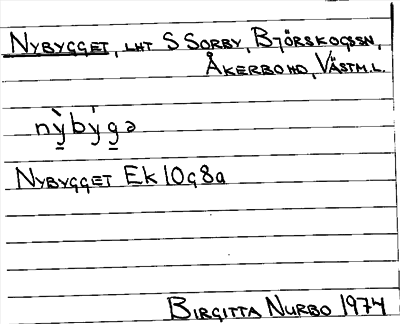 NYBYGGET, LHT S SORBY, BJÖRSKOGSSN,
ÅKERBO HD, VÄSTM.L.
nỳ̲býg̲ə
NYBYGGET EK 10g8a
BIRGITTA NURBO 1974